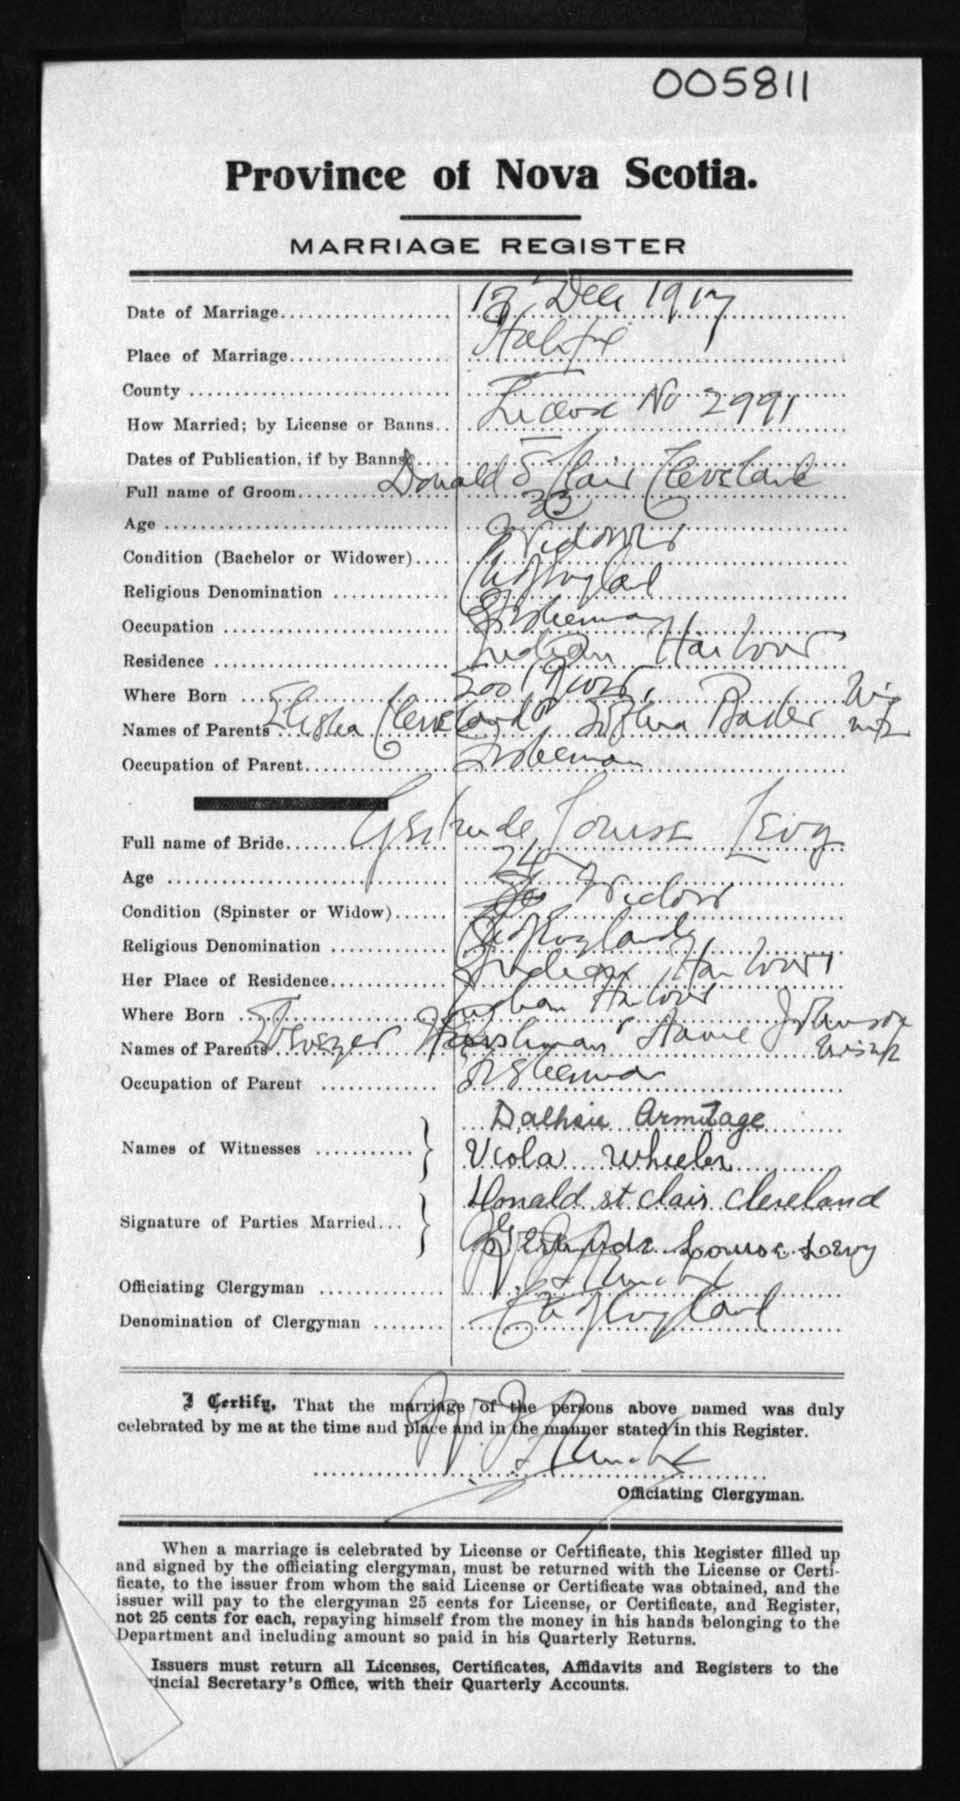 005811
Province of Nova Scotia.
MARRIAGE REGISTER
Date of Marriage 12 Dec 1917
Place of Marriage Halifax
County
How Married; by License or Banns License No 2991
Dates of Publication, if by Banns —
Full name of Groom Donald St Clair Cleveland
Age 33
Condition (Bachelor or Widower) Widower
Religious Denomination Ch of England
Occupation Fisherman
Residence Indian Harbour
Where Born
Names of Parents Elisha Cleveland
Occupation of Parent Fisherman
Full name of Bride Gertrude Louise Levy
Age 24
Condition (Spinster or Widow) Widow
Religious Denomination Ch of England
Her Place of Residence Indian Harbour
Where Born Indian Harbour
Names of Parents Ebenezer Annie Johnson
Occupation of Parent Fisherman
Names of Witnesses Dalhsie Armitage
Viola Wheeler
Signature of Parties Married Donald st clair cleveland
Gertrude Louise Levy
Officiating Clergyman
Denomination of Clergyman Ch of England
I Certify, That the marriage of the persons above named was duly
celebrated by me at the time and place and in the manner stated in this Register.
Officiating Clergyman.
When a marriage is celebrated by License or Certificate, this Register filled up
and signed by the officiating clergyman, must be returned with the License or Certi-
ficate, to the issuer from whom the said License or Certificate was obtained, and the
issuer will pay to the clergyman 25 cents for License, or Certificate, and Register,
not 25 cents for each, repaying himself from the money in his hands belonging to the
Department and including amount so paid in his Quarterly Returns.
Issuers must return all Licenses, Certificates, Affidavits and Registers to the
incial Secretary's Office, with their Quarterly Accounts.